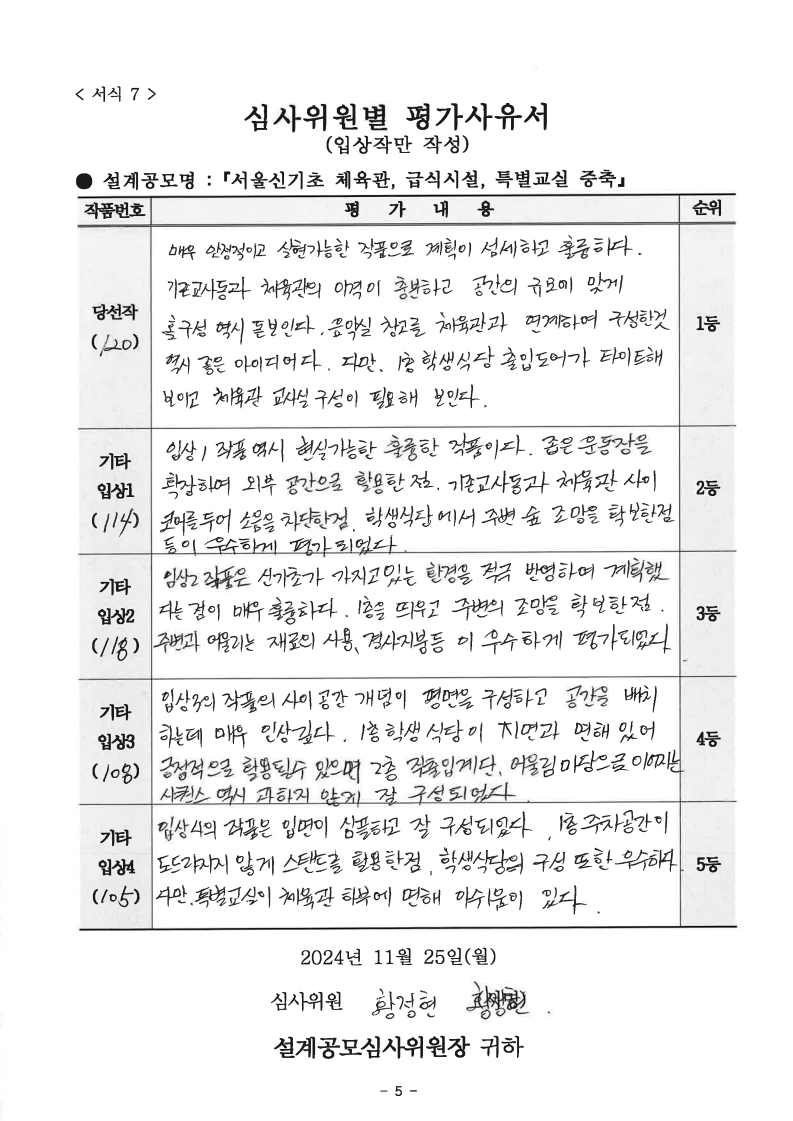 < 서식 7 >
심사위원별 평가사유서
(입상작만 작성)
● 설계공모명 : 『서울신기초 체육관, 급식시설, 특별교실 증축』
작품번호 평 가 내 용 순위
당선작
(120)
매우 안정적이고 실현가능한 작품으로 계획이 섬세하고 훌륭하다.
기존교사동과 체육관의 이격이 충분하고 공간의 규모에 맞게
홀구성 역시 돋보인다. 음악실 창고를 체육관과 연계하여 구성한것
역시 좋은 아이디어다. 다만, 1층 학생식당 출입도어가 타이트해
보이고 체육관 교사실 구성이 필요해 보인다.
1등
기타
입상1
(114)
입상1 작품 역시 현실가능한 훌륭한 작품이다. 좁은 운동장을
확장하여 외부 공간으로 활용한 점. 기존교사동과 체육관 사이
코어를 두어 소음을 차단한점. 학생식당에서 주변 숲 조망을 확보한점
등이 우수하게 평가되었다.
2등
기타
입상2
(118)
입상2 작품은 신기초가 가지고 있는 환경을 적극 반영하여 계획했
다는 점이 매우 훌륭하다. 1층을 띄우고 주변의 조망을 확보한점.
주변과 어울리는 재료의 사용, 경사지붕등 이 우수하게 평가되었다
3등
기타
입상3
(108)
입상3의 작품의 사이공간 개념이 평면을 구성하고 공간을 배치
하는데 매우 인상깊다. 1층 학생식당이 지면과 면해 있어
긍정적으로 활용될수 있으며 2층 직출입계단, 어울림마당으로 이어지는
시퀀스 역시 과하지 않게 잘 구성되었다.
4등
기타
입상4
(105)
입상4의 작품은 입면이 심플하고 잘 구성되었다. 1층 주차공간이
도드라지지 않게 스탠드를 활용한점, 학생식당의 구성 또한 우수하다.
다만, 특별교실이 체육관 하부에 면해 아쉬움이 있다.
5등
2024년 11월 25일(월)
심사위원 황정현 황정현
설계공모심사위원장 귀하
- 5 -